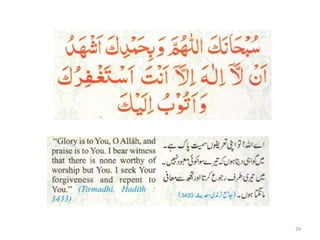 سُبْحَانَكَ اللّٰهُمَّ وَبِحَمْدِكَ اَشْهَدُ
اَنْ لَّا اِلٰهَ اِلَّا اَنْتَ اَسْتَغْفِرُكَ
وَاَتُوْبُ اِلَيْكَ
"Glory is to You, O Allâh, and
praise is to You. I bear witness
that there is none worthy of
worship but You. I seek Your
forgiveness and repent to
You." (Tirmadhi, Hadith :
3433)
اے اللہ! تو اپنی تعریفوں سمیت پاک ہے۔
میں گواہی دیتا ہوں کہ تیرے سوا کوئی معبود نہیں۔
میں تیری طرف رجوع کرتا اور تجھ سے معافی
مانگتا ہوں۔ (جامع ترمذی حدیث: 3433)
29